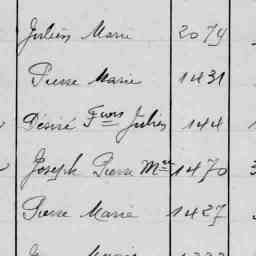 Julien Marie 2079
Pierre Marie 1431
Désiré Fçois Jules 144
Joseph Pierre Mie 1470
Pierre Marie 1427